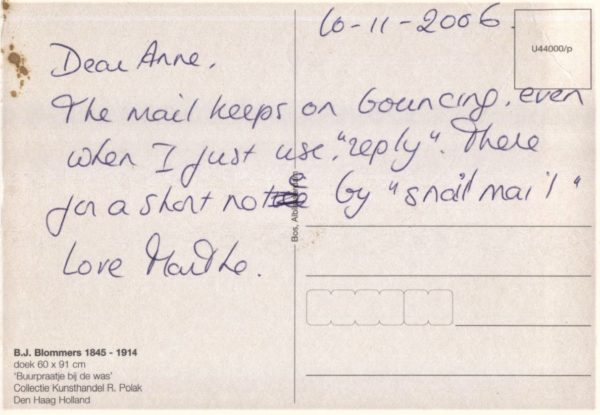 10-11-2006
U44000/p
Dear Anne,
The mail keeps on bouncing, even
when I just use "reply". There
for a short note by "snail mail"
Love Marthe.
Bos,
B.J. Blommers 1845 - 1914
doek 60 x 91 cm
'Buurpraatje bij de was'
Collectie Kunsthandel R. Polak
Den Haag Holland